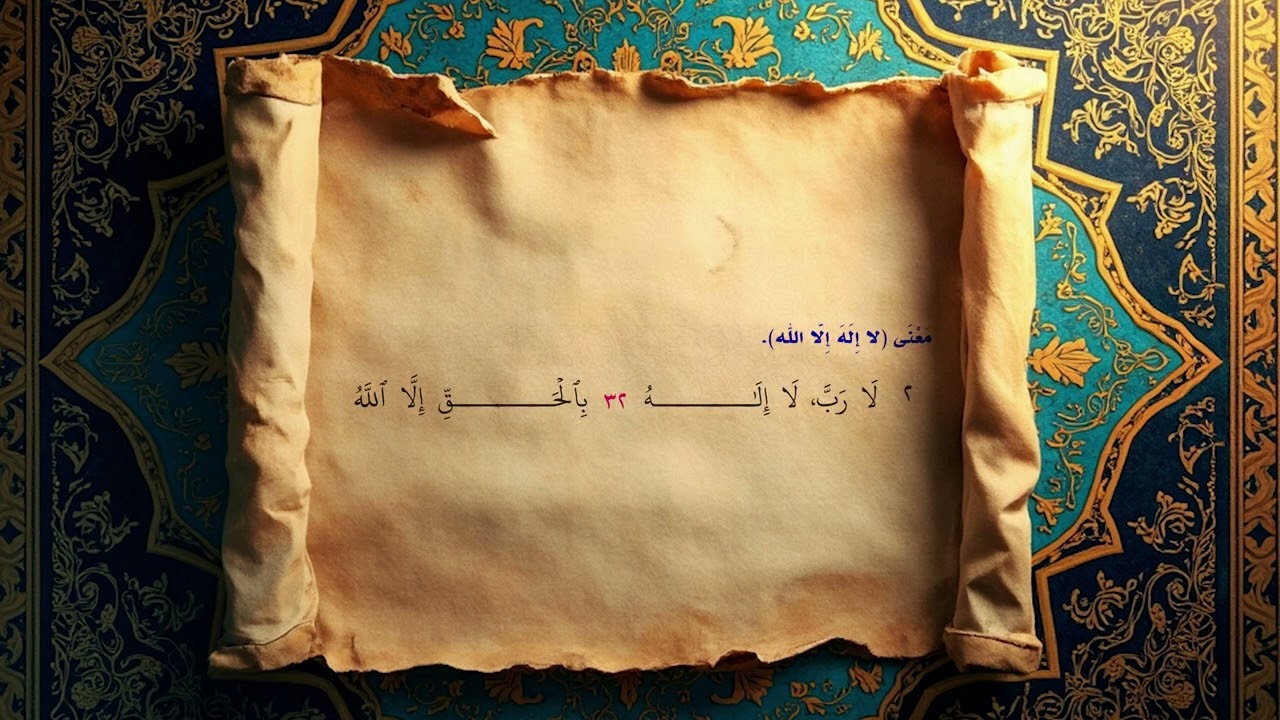 مَعْنَى (لا إِلَهَ إِلَّا الله).
٢ لَا رَبَّ، لَا إِلَـٰـهُ ٣٢ بِٱلْحَـقِّ إِلَّا ٱللَّهُ